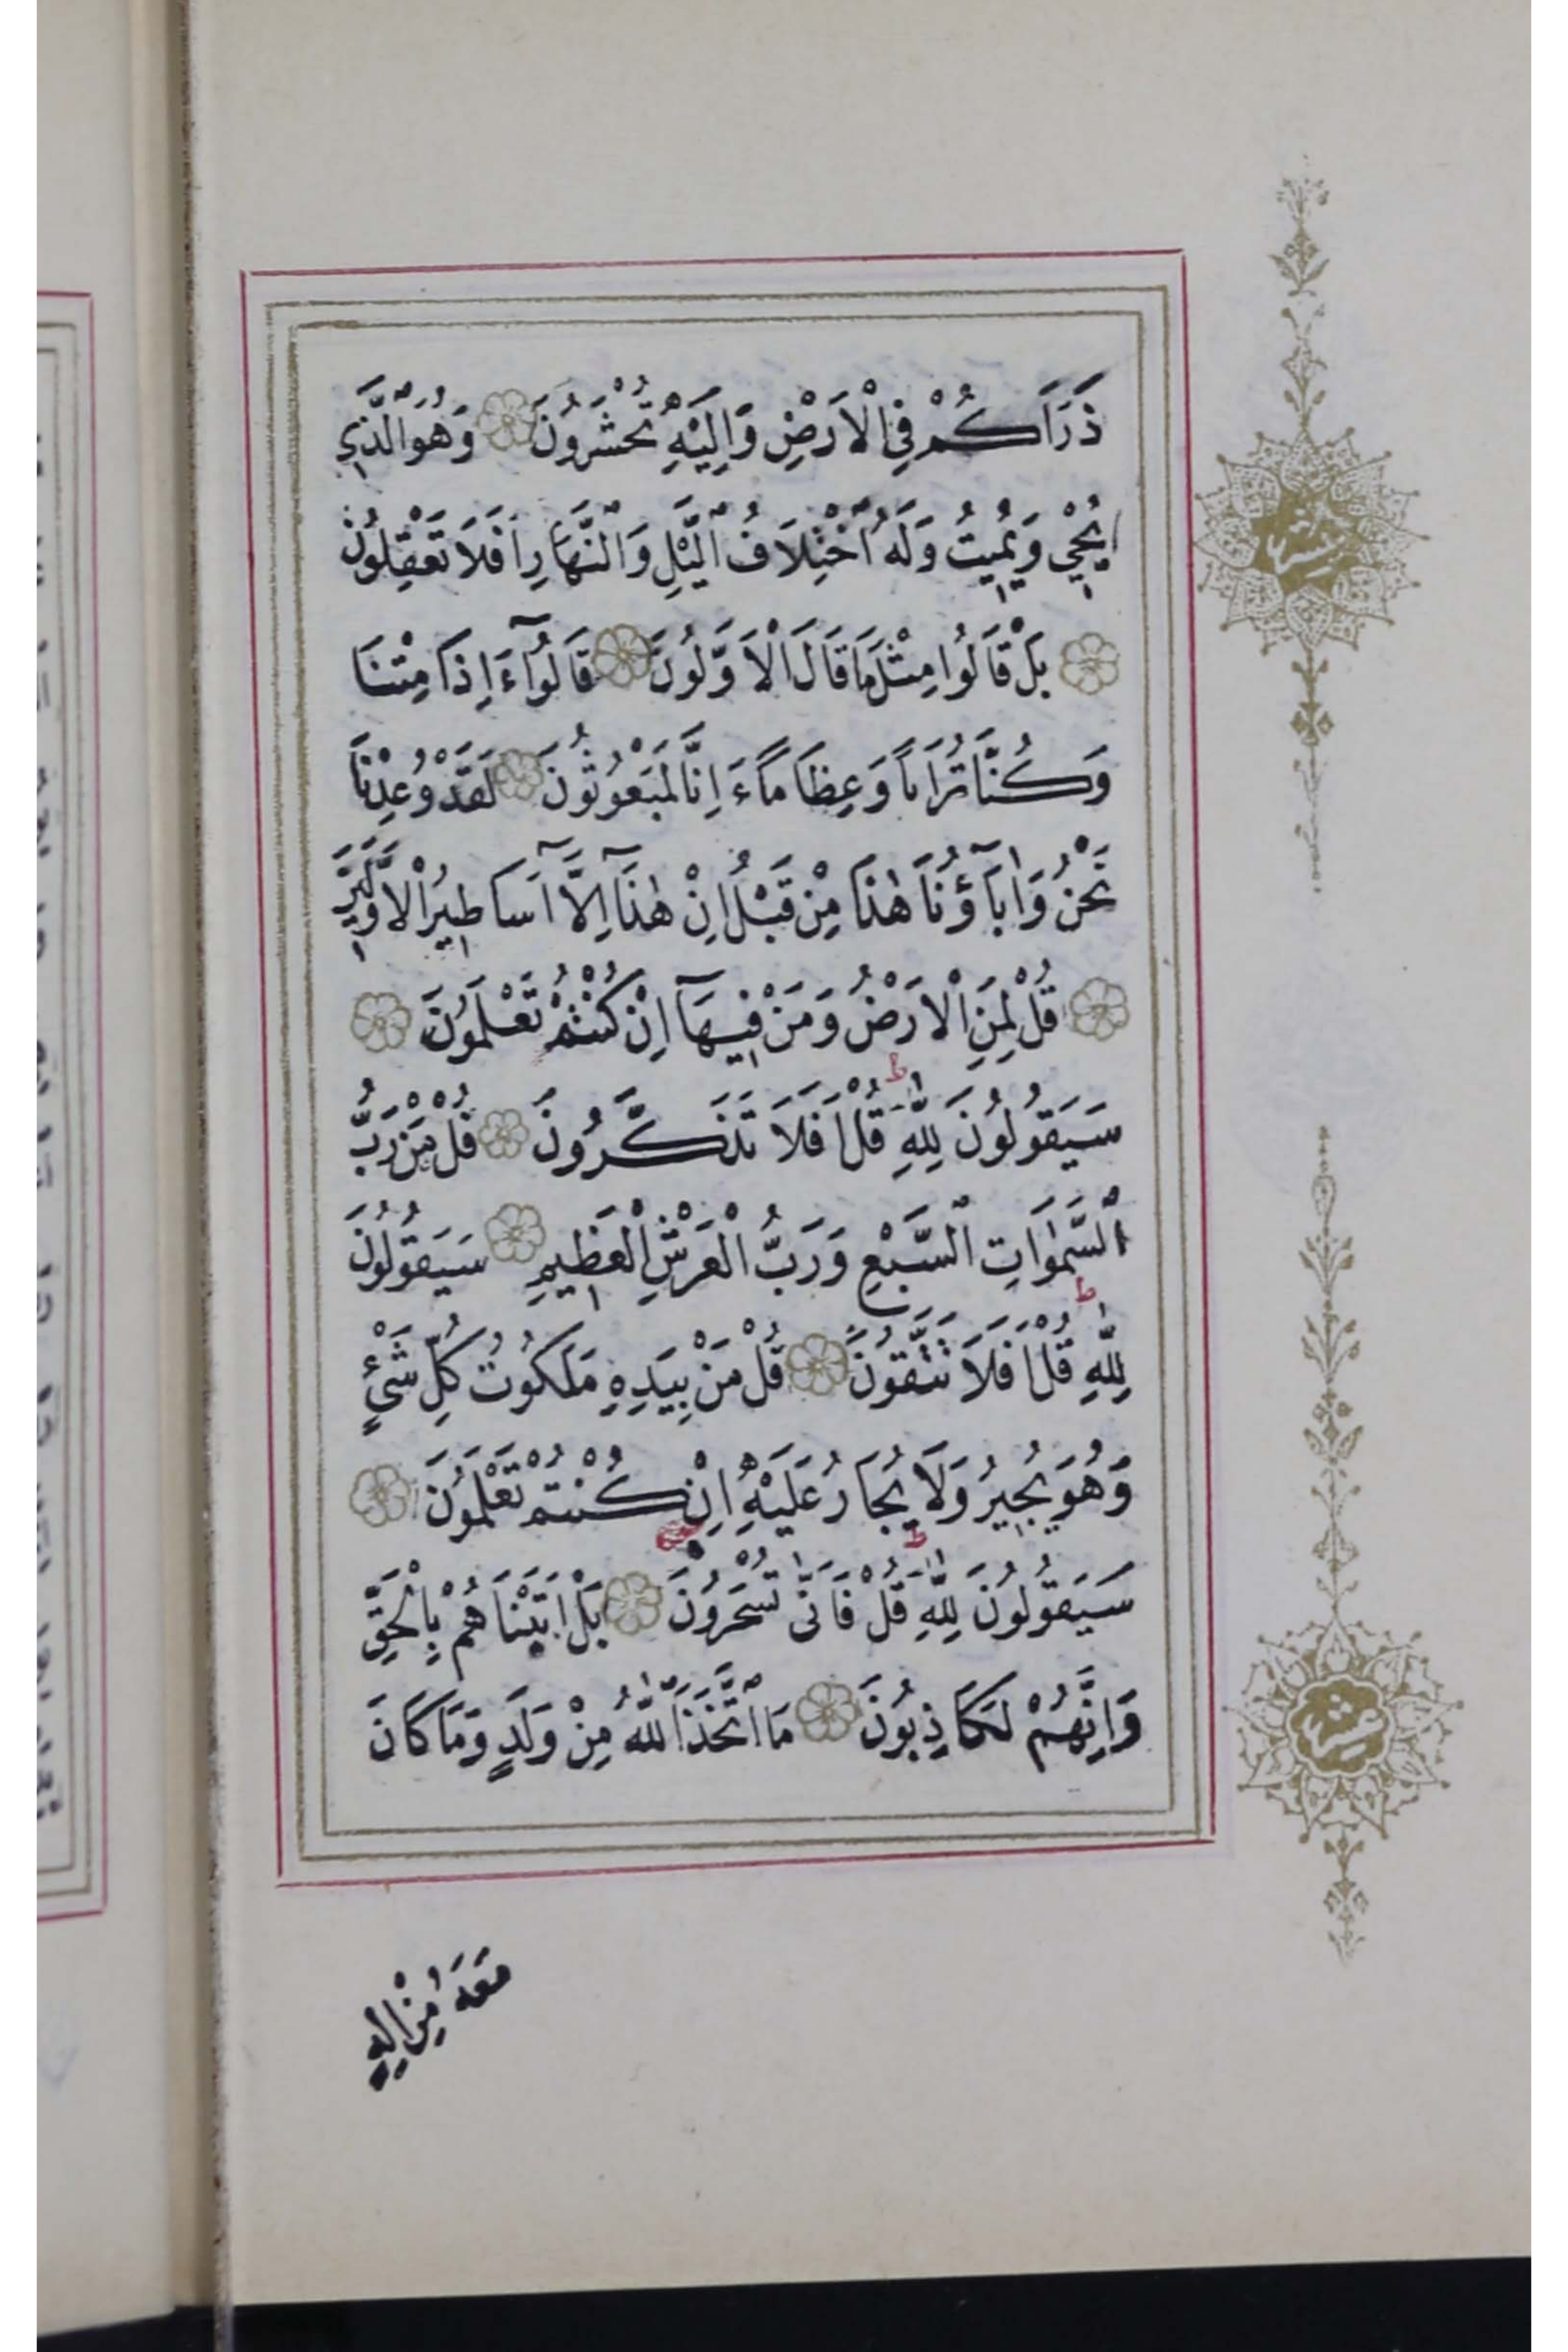 ذَرَاَكُمْ فِي الْاَرَضِ وَاِلَيْهِ تُحْشَرُونَ وَهُوَ الَّذِي
يُحْيِ وَيُمِيتُ وَلَهُ اخْتِلَافُ الَّيْلِ وَالنَّهَارِ اَفَلَا تَعْقِلُونَ
بَلْ قَالُوا مِثْلَ مَا قَالَ الْاَوَّلُونَ قَالُوٓا ءَاِذَا مِتْنَا
وَكُنَّا تُرَابًا وَعِظَامًا ءَاِنَّا لَمَبْعُوثُونَ لَقَدْ وُعِدْنَا
نَحْنُ وَاٰبَآؤُنَا هٰذَا مِنْ قَبْلُ اِنْ هٰذَٓا اِلَّٓا اَسَاطِيرُ الْاَوَّلِينَ
قُلْ لِمَنِ الْاَرْضُ وَمَنْ فِيهَٓا اِنْ كُنْتُمْ تَعْلَمُونَ
سَيَقُولُونَ لِلّٰهِ ط قُلْ اَفَلَا تَذَكَّرُونَ قُلْ مَنْ رَبُّ
السَّمٰوَاتِ السَّبْعِ وَرَبُّ الْعَرْشِ الْعَظِيمِ سَيَقُولُونَ
لِلّٰهِ ط قُلْ اَفَلَا تَتَّقُونَ قُلْ مَنْ بِيَدِهِ مَلَكُوتُ كُلِّ شَيْءٍ
وَهُوَ يُجِيرُ وَلَا يُجَارُ عَلَيْهِ اِنْ كُنْتُمْ تَعْلَمُونَ
سَيَقُولُونَ لِلّٰهِ ط قُلْ فَاَنّٰى تُسْحَرُونَ بَلْ اَتَيْنَاهُمْ بِالْحَقِّ
وَاِنَّهُمْ لَكَاذِبُونَ مَا اتَّخَذَ اللّٰهُ مِنْ وَلَدٍ وَمَا كَانَ
مَعَهُ مِنْ اِلٰهٍ